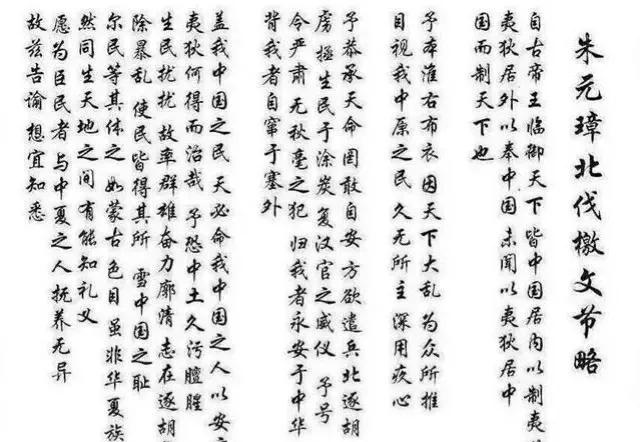 朱元璋北伐檄文节略
自古帝王临御天下 皆中国居内以制夷
夷狄居外以奉中国 未闻以夷狄居中
国而制天下也
予本淮右布衣 因天下大乱 为众所推
目视我中原之民 久无所主 深用疚心
予恭承天命 罔敢自安 方欲遣兵北逐胡
虏 拯生民于涂炭 复汉官之威仪 予号
令严肃 无秋毫之犯 归我者永安于中华
背我者自窜于塞外
盖我中国之民 天必命我中国之人以安
夷狄何得而治哉 予恐中土久污膻腥
生民扰扰 故率群雄奋力廓清 志在逐胡
除暴乱 使民皆得其所 雪中国之耻
尔民等其体之 如蒙古色目 虽非华夏族
然同生天地之间 有能知礼义
愿为臣民者 与中夏之人抚养无异
故兹告谕 想宜知悉